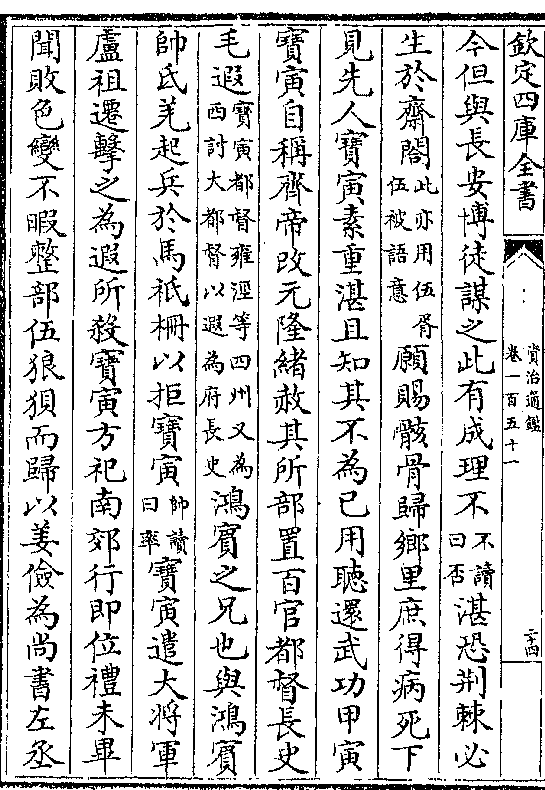 欽定四庫全書
資治通鑑
卷一百五十一
二十四
今但與長安博徒謀之此有成理不不讀曰否湛恐荆棘必
生於齋閤此亦用伍胥伍被語意願賜骸骨歸鄉里庶得病死下
見先人寶寅素重湛且知其不為己用聽還武功甲寅
寶寅自稱齊帝改元隆緒赦其所部置百官都督長史
毛遐寶寅都督雍涇等四州又為西討大都督以遐為府長史鴻賓之兄也與鴻賓
帥氐羌起兵於馬祇柵以拒寶寅帥讀曰率寶寅遣大將軍
盧祖遷擊之為遐所殺寶寅方祀南郊行即位禮未畢
聞敗色變不暇整部伍狼狽而歸以姜儉為尚書左丞